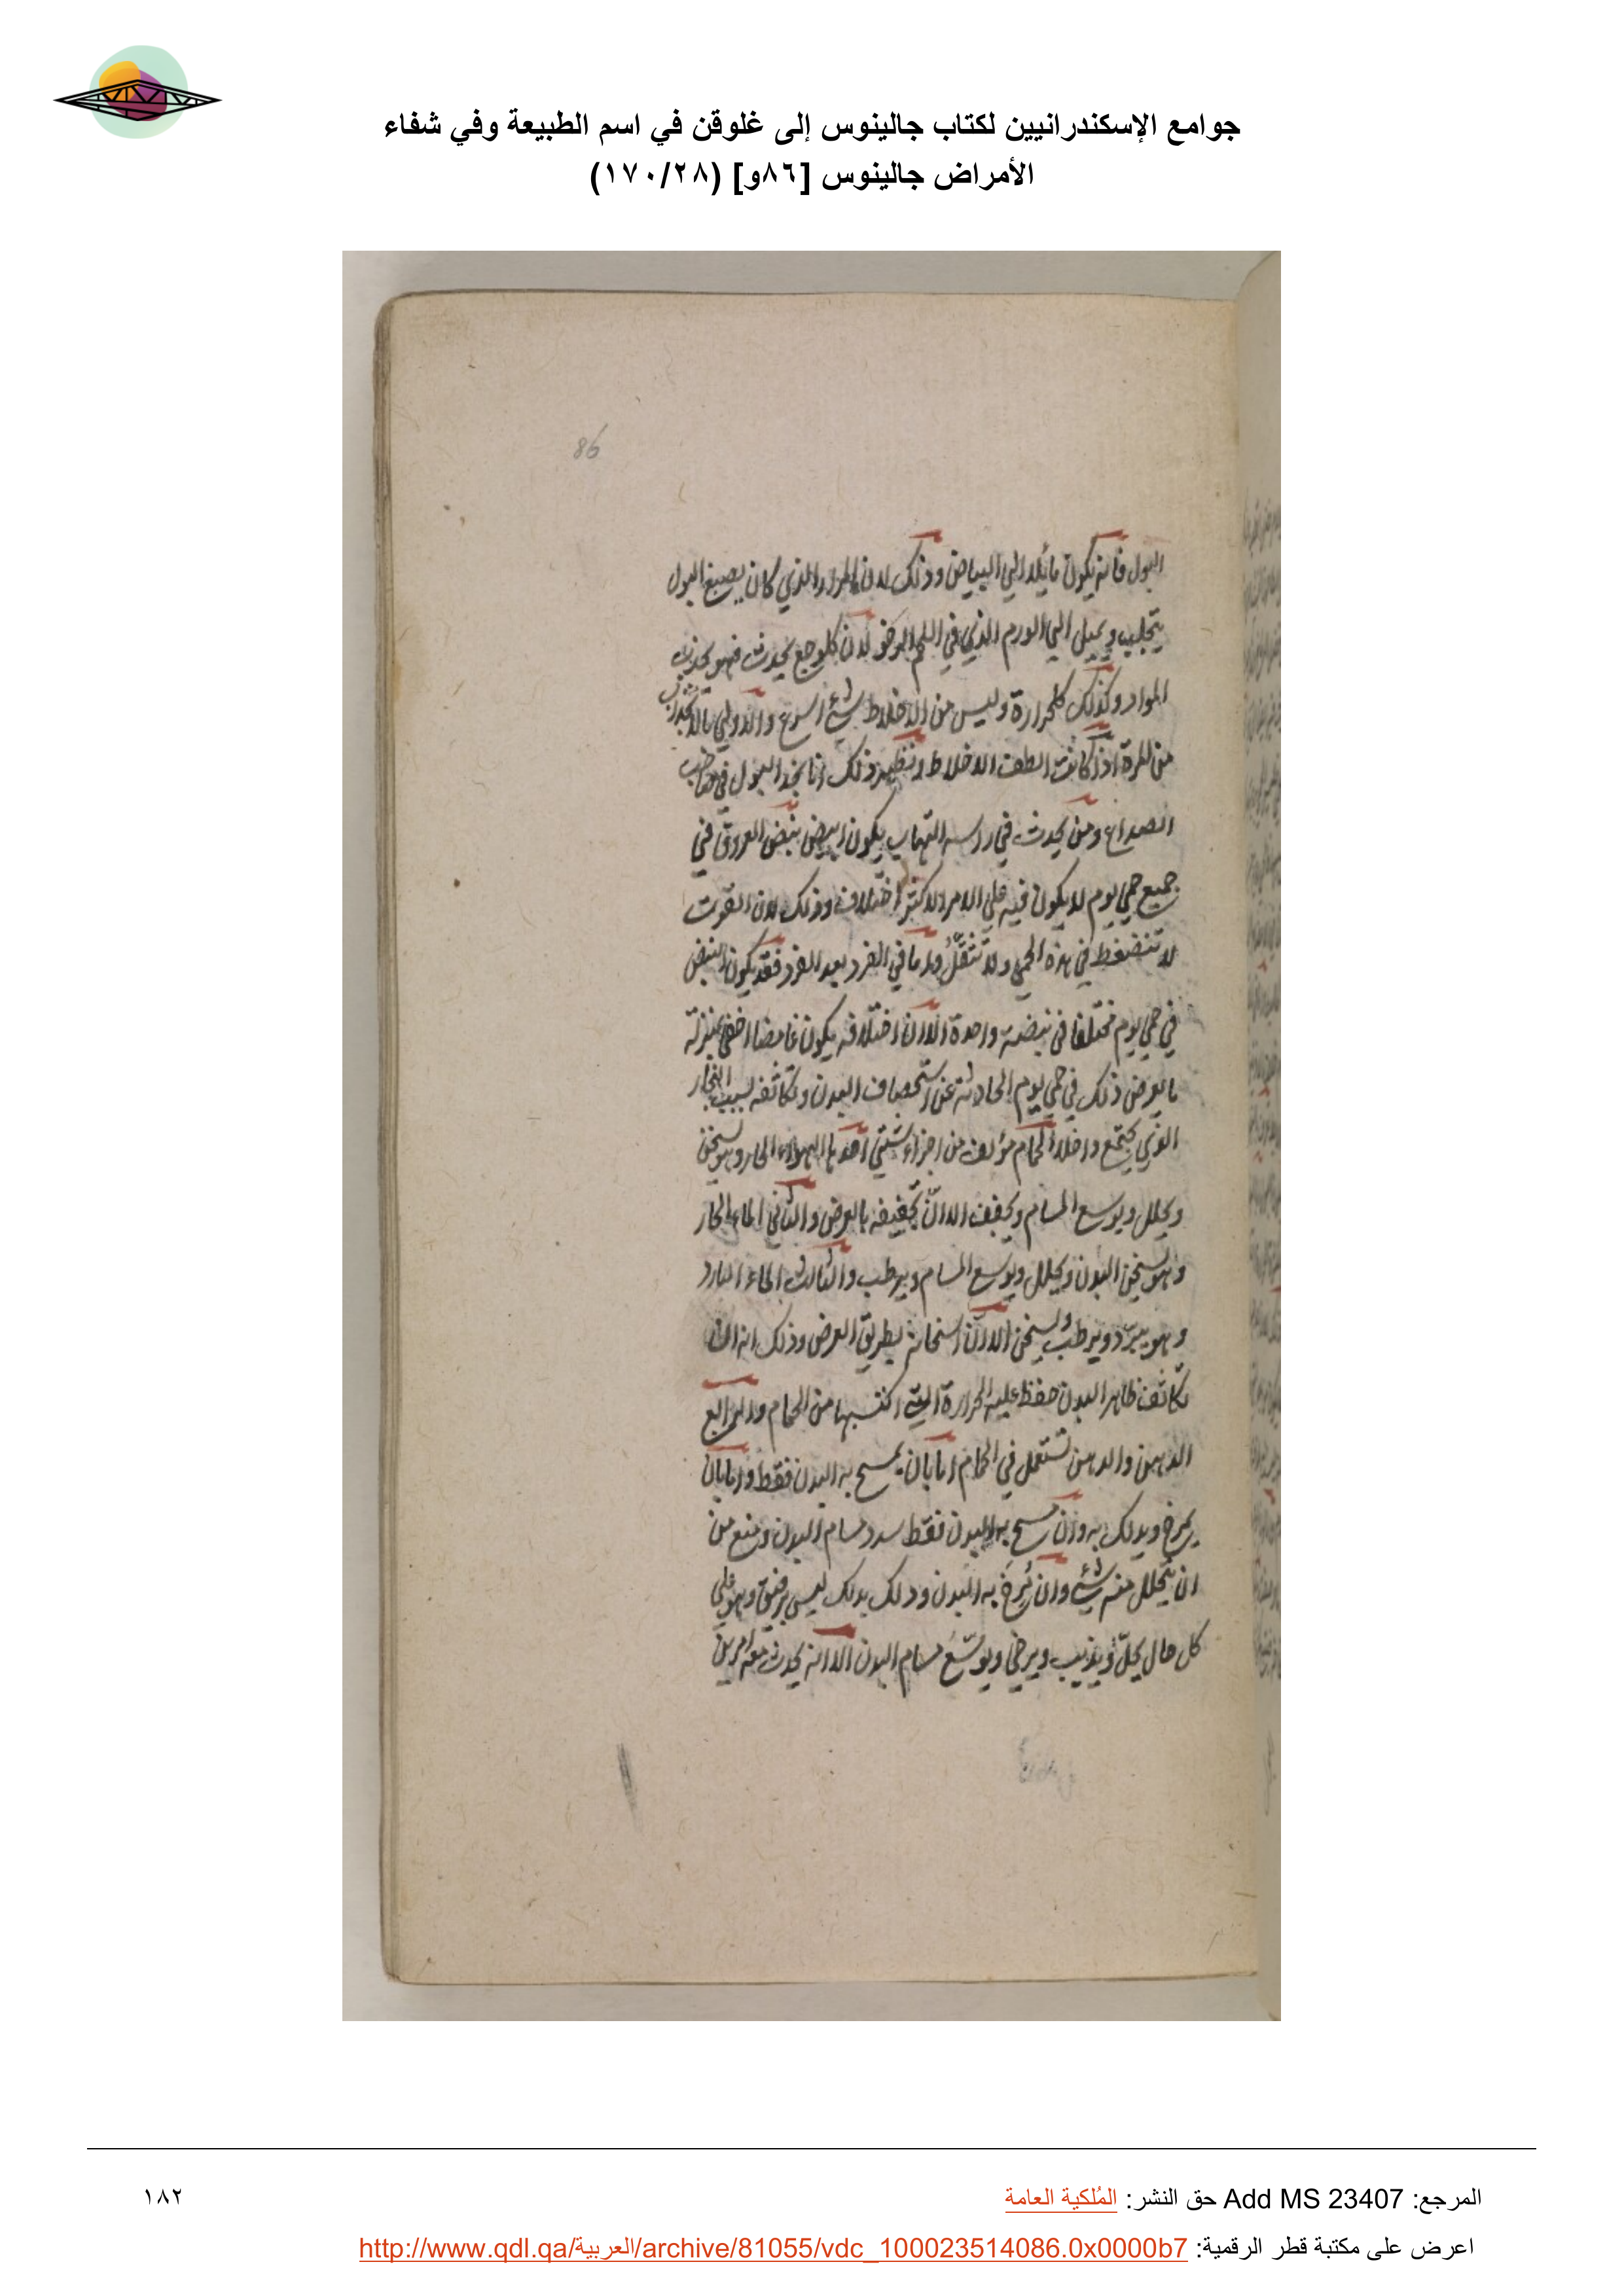 جوامع الإسكندرانيين لكتاب جالينوس إلى غلوقن في اسم الطبيعة وفي شفاء
الأمراض جالينوس [٨٦و] (١٧٠/٢٨)
86
البول فانه يكون مائلا الي البياض وذلك لان المرار الذي كان يصبغ البول
يتجلب ويميل الي الورم الذي في اللحم الرخو لان كل وجع يحدث فهو يجذب
المواد وكذلك كل حرارة وليس من الاخلاط شئ اسرع والاولي بالانجذاب
من المرة اذ كانت الطف الاخلاط ونظير ذلك انا نجد البول في صاحب
الصداع ومن يحدث في راسه التهاب يكون ابيض نبض العروق في
جميع حمي يوم لا يكون فيه علي الامر الاكثر اختلاف وذلك لان القوت
لا تنضغط في هذه الحمي ولا تثقل واما في الفرد بعد الفرد فقد يكون النبض
في حمي يوم مختلفا في نبضة واحدة الا ان اختلافه يكون غامضا اخفي بمنزلة
ما يعرض ذلك في حمي يوم الحادثة عن استحصاف البدن وتكاثفه بسبب البخار
الذي يجتمع داخلا الحمام مؤلف من اجزاء شتي احدها الهواء الحار وهو يسخن
ويحلل ويوسع المسام ويجفف الا ان تجفيفه بالعرض والثاني الماء الحار
وهو يسخن البدن ويحلل ويوسع المسام ويرطب والثالث الماء البارد
وهو يبرد ويرطب ويسخن الا ان اسخانه بطريق العرض وذلك انه اذا
تكاثف ظاهر البدن حفظ عليه الحرارة التي اكتسبها من الحمام والرابع
الدهن والدهن تستعمل في الحمام اما بان يمسح به البدن فقط واما بان
يمرخ ويدلك به وان مسح به البدن فقط سدد مسام البدن ومنع من
ان يتحلل منه شئ وان مرخ به البدن ودلك بدلك ليس برفيق وهو علي
كل حال يحل ويذيب ويرخي ويوسع مسام البدن الا انه يحدث معه امرين
المرجع: Add MS 23407 حق النشر: المُلكية العامة
١٨٢
اعرض على مكتبة قطر الرقمية: http://www.qdl.qa/العربية/archive/81055/vdc_100023514086.0x0000b7